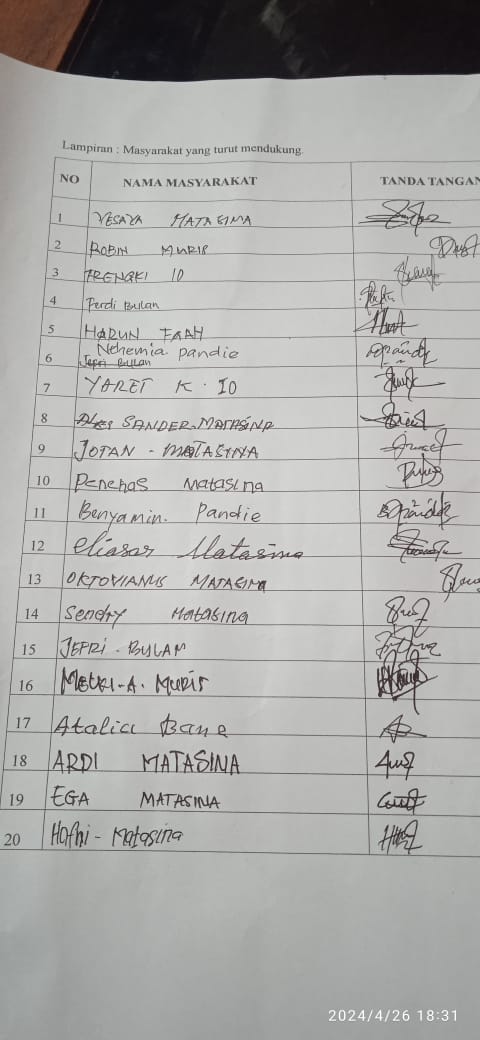 Lampiran : Masyarakat yang turut mendukung.
NO NAMA MASYARAKAT TANDA TANGAN
1 YESAYA MATASINA
2 ROBIN MURIB
3 FRENGKI IO
4 Ferdi Bulan
5 HARUN FAAH
6 Nehemia Pandie
Jepri Bulan
7 YARET K. IO
8 SANDER. MATASINA
9 JOTAN - MATASINA
10 Penehas Matasina
11 Benyamin. Pandie
12 eliasar Matasina
13 OKTOVIANUS MATASINA
14 Sendry Matasina
15 JEPRI . BULAM
16 MELKI - A. MURIS
17 Atalia Bane
18 ARDI MATASINA
19 EGA MATASINA
20 Hofni - Matasina
2024/4/26 18:31